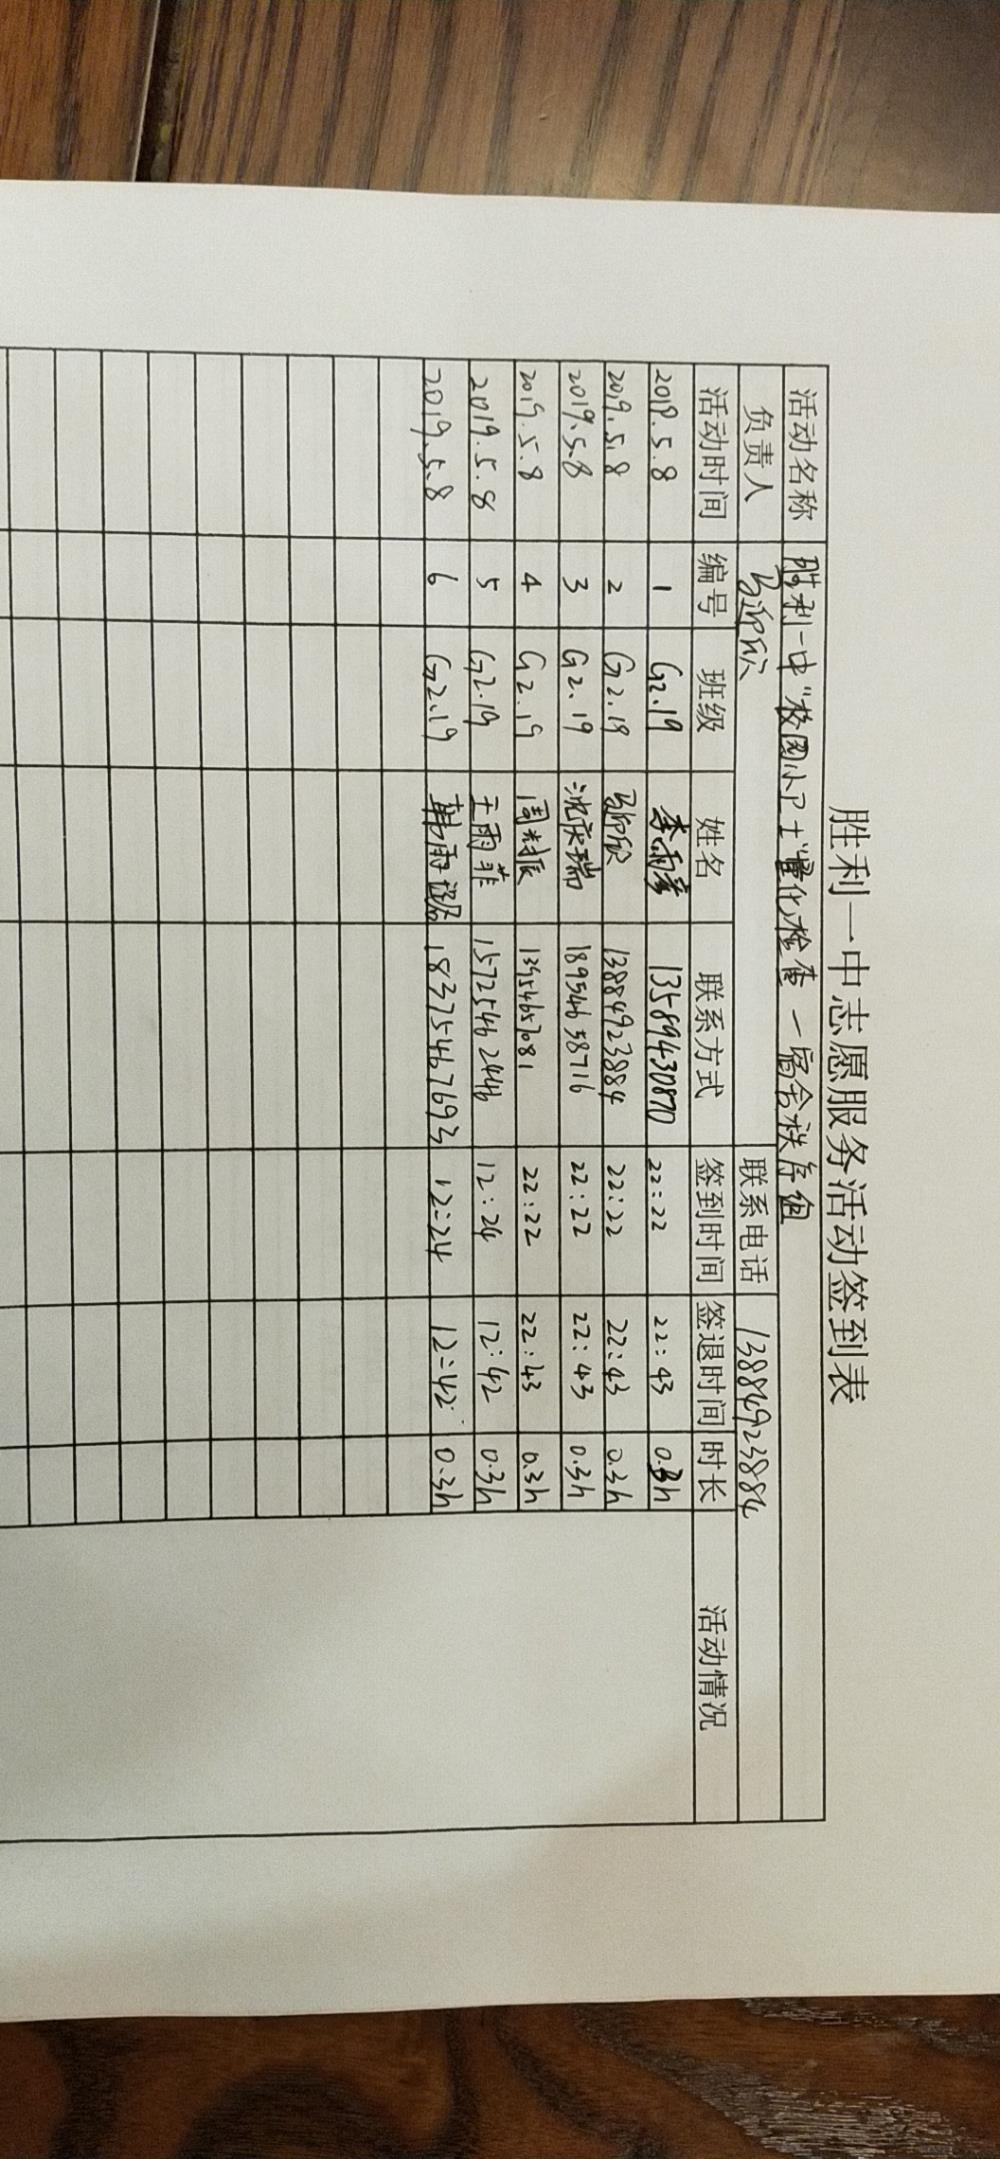 胜利一中志愿服务活动签到表
活动名称 胜利一中"校园小卫士"量化检查 一宿舍秩序组
负责人 马迎欣 联系电话 13884923884
活动时间 编号 班级 姓名 联系方式 签到时间 签退时间 时长 活动情况
2019.5.8 1 G2.19 13589430870 22:22 22:43 0.3h
2019.5.8 2 G2.19 马迎欣 13884923884 22:22 22:43 0.3h
2019.5.8 3 G2.19 沈庆瑞 18954658716 22:22 22:43 0.3h
2019.5.8 4 G2.19 13954657081 22:22 22:43 0.3h
2019.5.8 5 G2.19 王雨菲 15725462446 12:24 12:42 0.3h
2019.5.8 6 G2.19 18375467693 12:24 12:42 0.3h